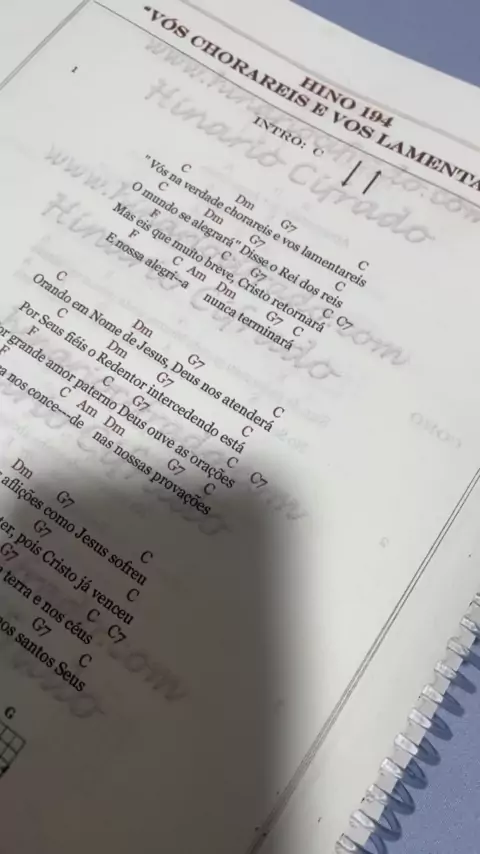 HINO 194
"VÓS CHORAREIS E VOS LAMENTA
INTRO: C
1
C Dm G7 C
"Vós na verdade chorareis e vos lamentareis
C Dm G7 C
O mundo se alegrará" Disse o Rei dos reis
F C G7 C C7
Mas eis que muito breve, Cristo retornará
F C Am Dm G7 C
E nossa alegri-a nunca terminará
C Dm G7 C
Orando em Nome de Jesus, Deus nos atenderá
C Dm G7 C
Por Seus fiéis o Redentor intercedendo está
F C G7 C C7
or grande amor paterno Deus ouve as orações
F C Am Dm G7 C
a nos conce----de nas nossas provações
Dm G7 C
aflições como Jesus sofreu
G7 C
ter, pois Cristo já venceu
G7 C C7
terra e nos céus
G7 C
os santos Seus
G
www.hinariocifrado.com
Hinario Cifrado